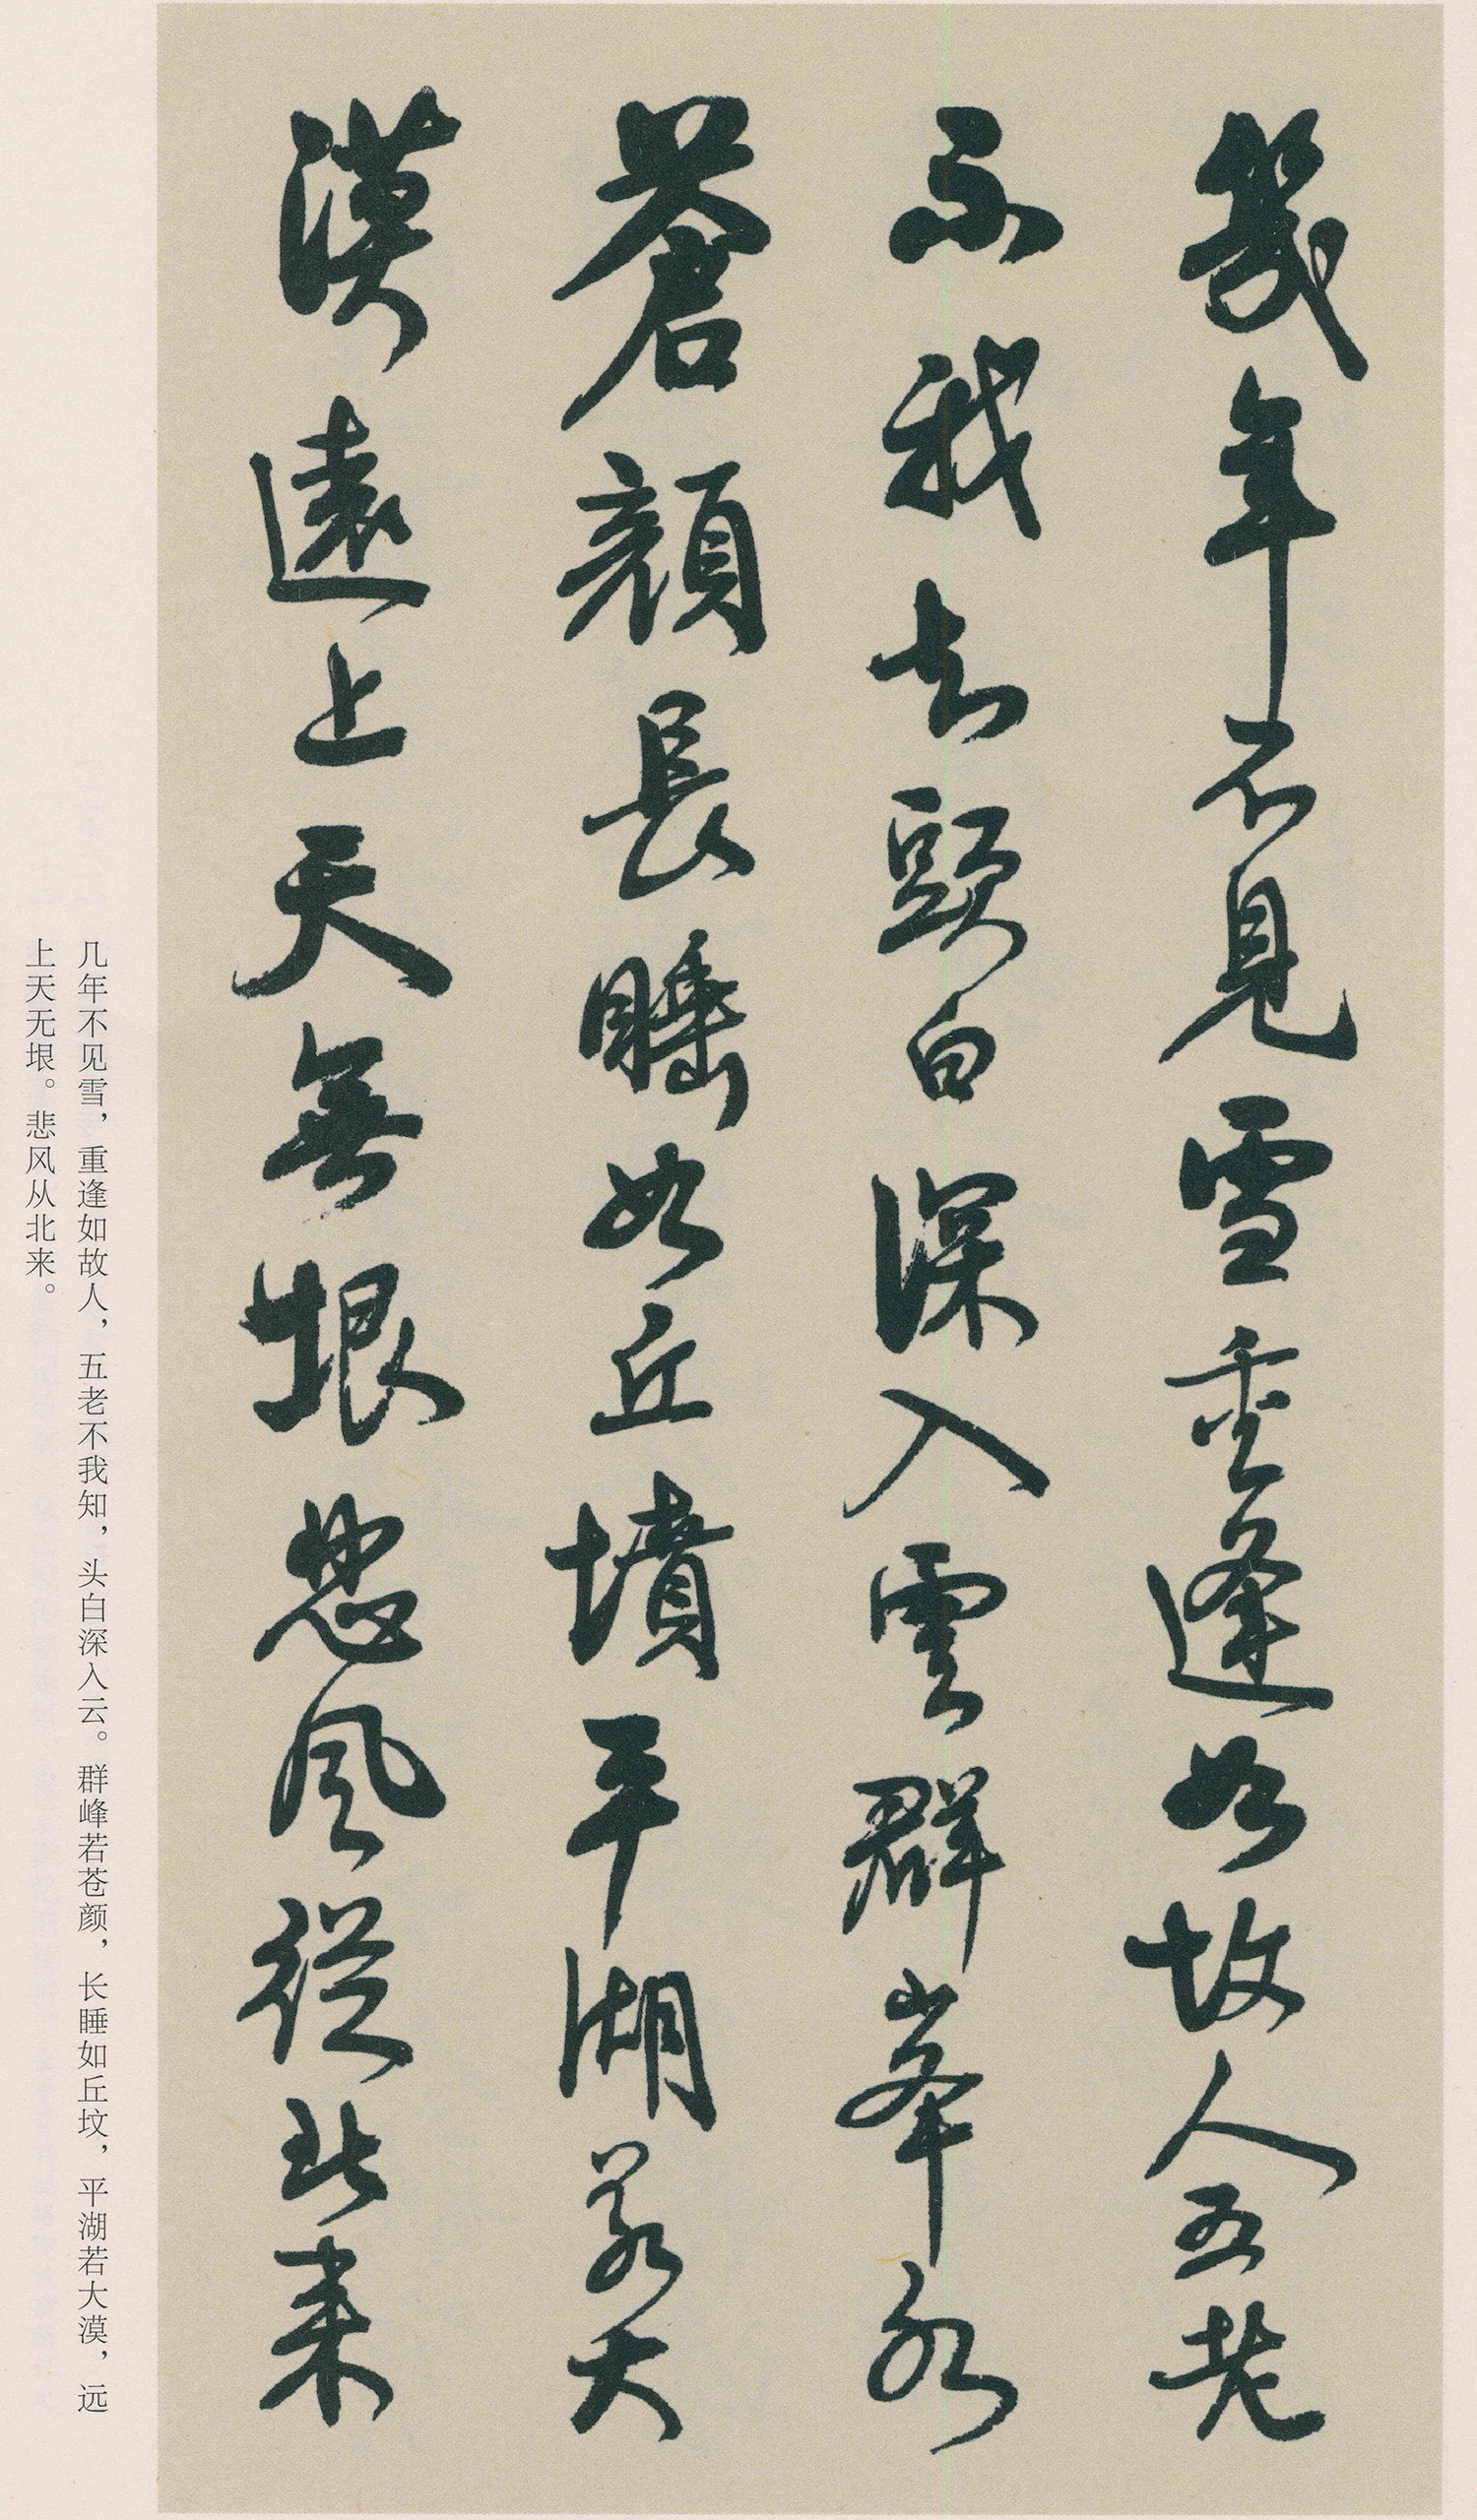 幾年不見雪重逢如故人五老
不我知頭白深入雲群峯若
蒼顔長睡如丘墳平湖若大
漠遠上天無垠悲風從北来
几年不见雪，重逢如故人，五老不我知，头白深入云。群峰若苍颜，长睡如丘坟，平湖若大漠，远
上天无垠。悲风从北来。